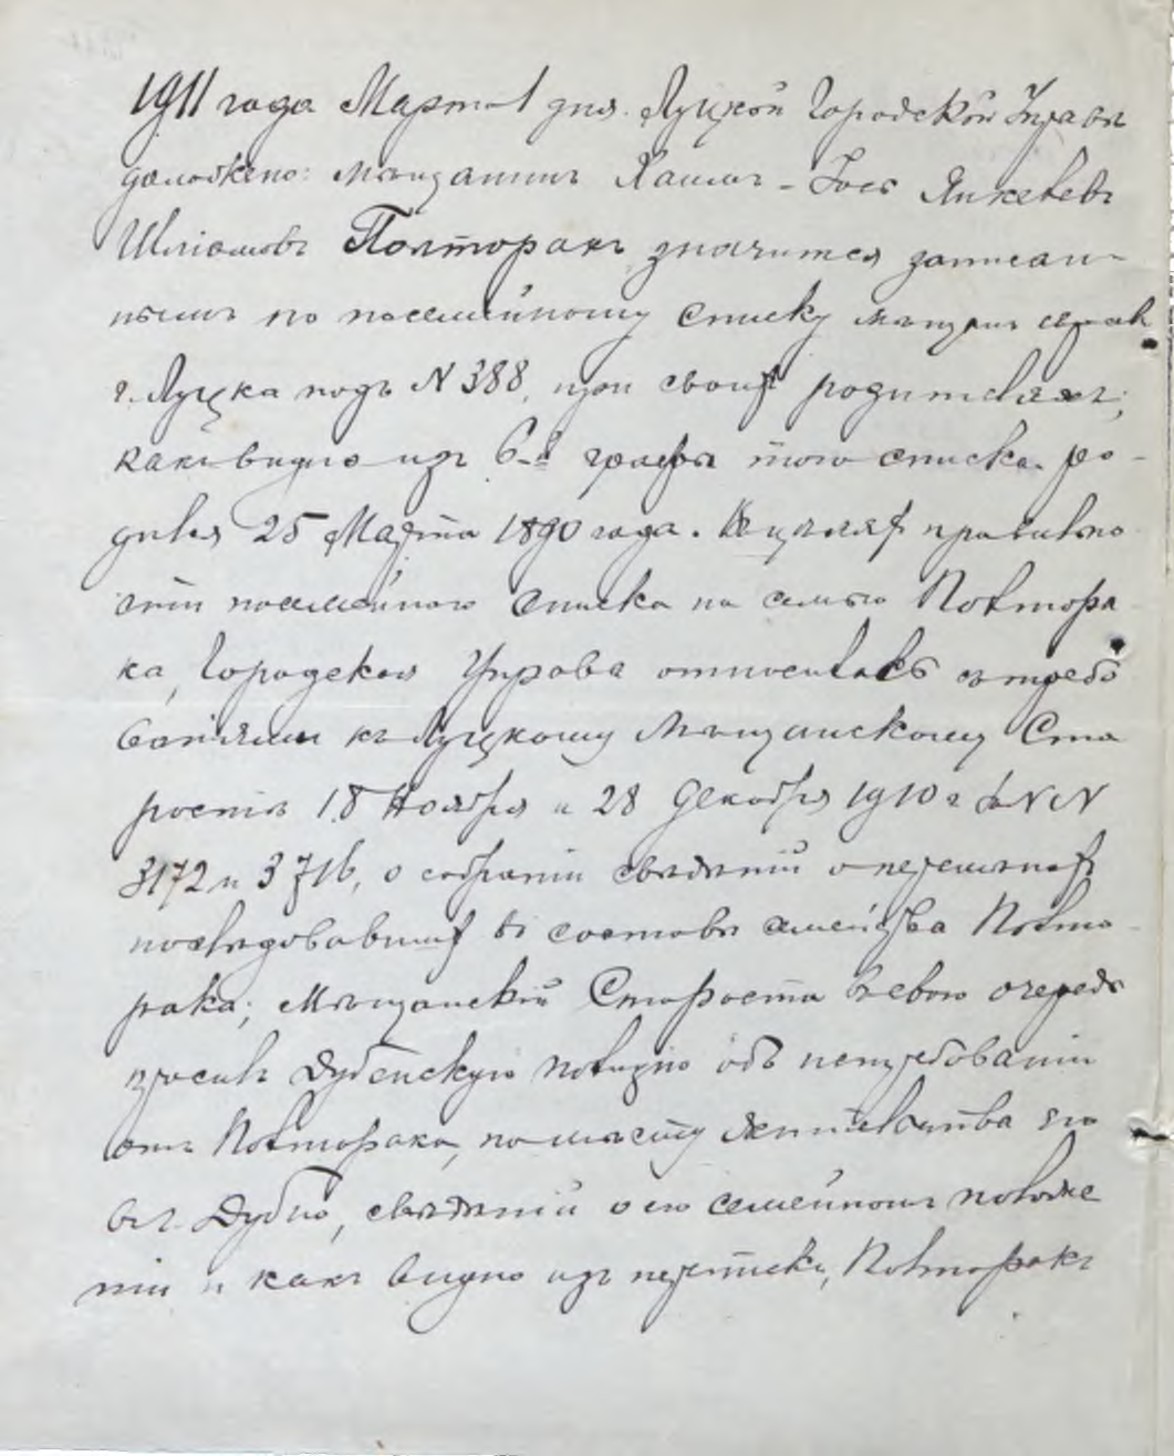 1911 года Марта 1 дня. Луцкой Городской Управѣ
доложено: мѣщанинъ Хаимъ - Іось Янкелевъ
Шліомовъ Полторакъ значится записан-
нымъ по посемейному списку мѣщанъ евреевъ
г. Луцка подъ N 388, при своихъ родителяхъ;
какъ видно изъ 6-й графы того списка ро-
дился 25 Марта 1890 года. Въ цѣляхъ правильно
сти посемейнаго списка на семью Полтора
ка, Городская Управа относилась съ требо
ваніями къ Луцкому Мѣщанскому Ста
ростѣ 18 Ноября и 28 Декабря 1910 г за NN
3172 и 3716, о собраніи свѣдѣній о перемѣнахъ
послѣдовавшихъ въ составѣ семейства Полто
рака; Мѣщанскій Староста въ свою очередь
просилъ Дубенскую полицію объ истребованіи
отъ Полторака, по мѣсту жительства его
въ г. Дубно, свѣдѣній о его семейномъ положе
ніи и какъ видно изъ переписки, Полторакъ